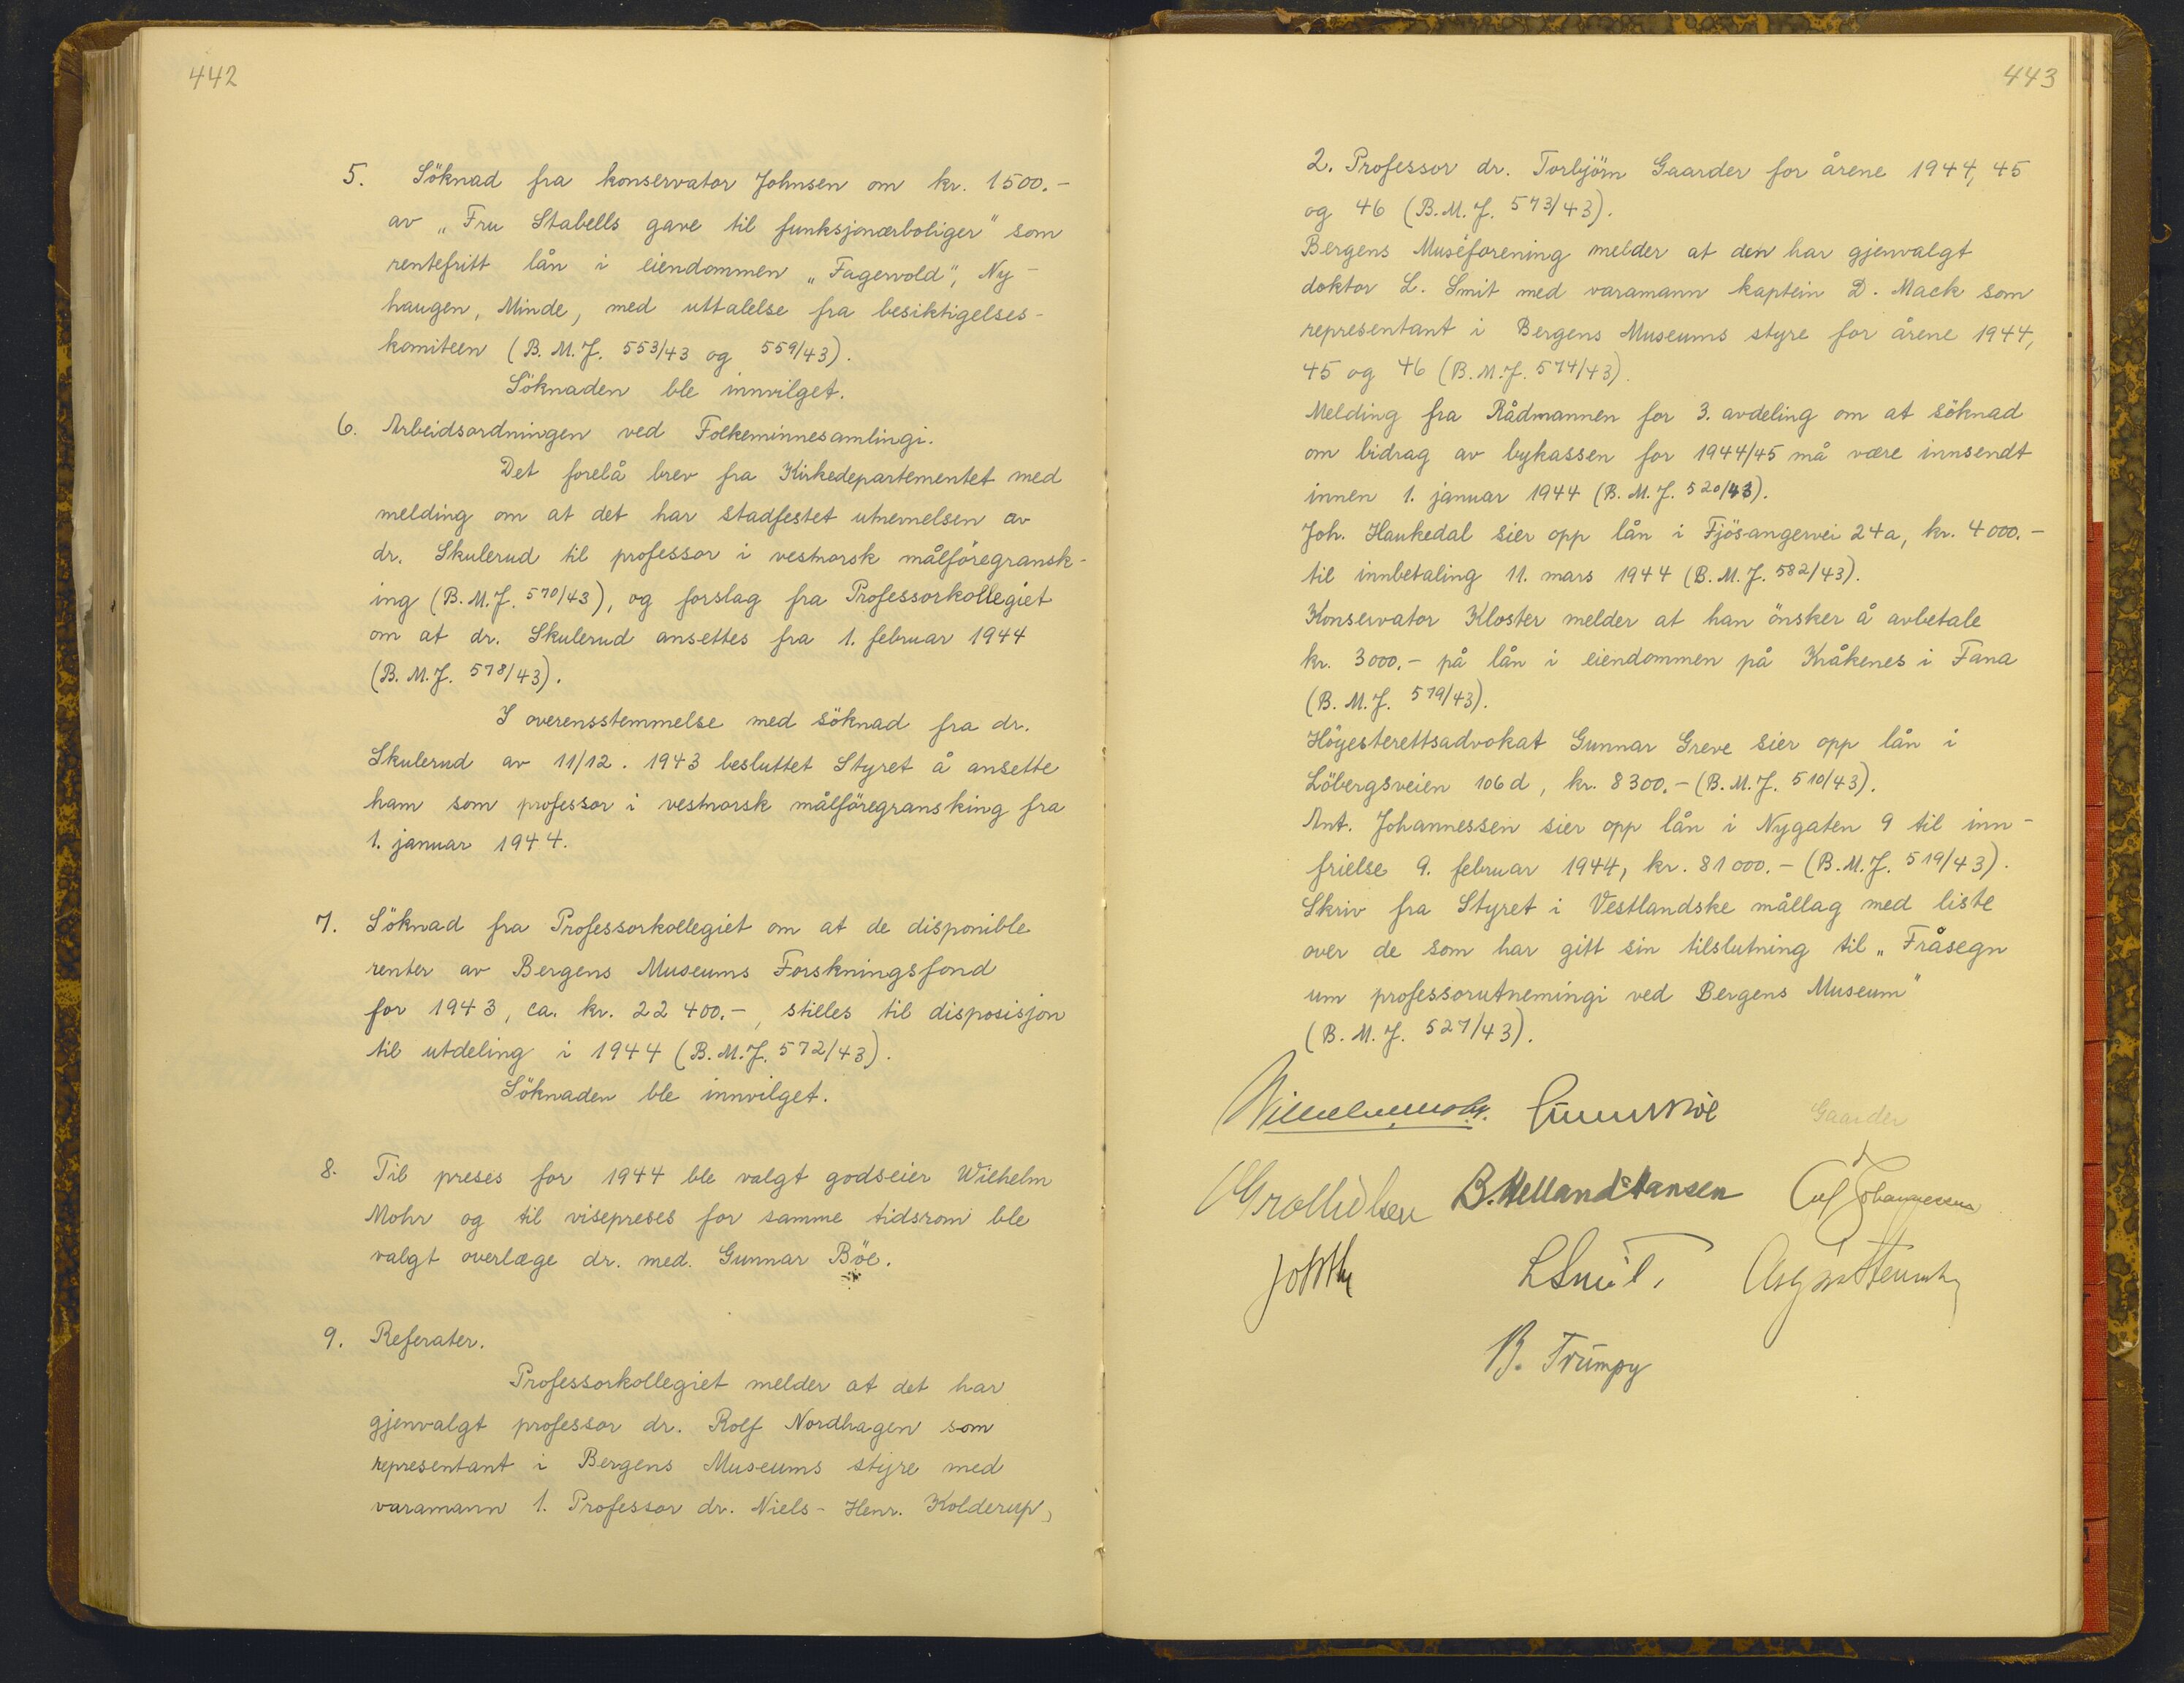 442
5. Söknad fra konservator Johnsen om kr. 1500.-
av „Fru Stabells gave til funksjonærboliger" som
rentefritt lån i eiendommen „Fagervold", Ny-
haugen, Minde, med uttalelse fra besiktigelses-
komiteen (B.M.J. 553/43 og 559/43).
Söknaden ble innvilget.
6. Arbeidsordningen ved Folkeminnesamlingi.
Det forelå brev fra Kirkedepartementet med
melding om at det har stadfestet utnemelsen av
dr. Skulerud til professor i vestnorsk målföregransk-
ing (B.M.J. 570/43), og forslag fra Professorkollegiet
om at dr. Skulerud ansettes fra 1. februar 1944
(B.M.J. 578/43).
I overensstemmelse med söknad fra dr.
Skulerud av 11/12. 1943 besluttet Styret å ansette
ham som professor i vestnorsk målföregransking fra
1. januar 1944.
7. Söknad fra Professorkollegiet om at de disponible
renter av Bergens Museums Forskningsfond
for 1943, ca. kr. 22 400.-, stilles til disposisjon
til utdeling i 1944 (B.M.J. 572/43).
Söknaden ble innvilget.
8. Til preses for 1944 ble valgt godseier Wilhelm
Mohr og til visepreses for samme tidsrom ble
valgt overlæge dr. med. Gunnar Böe.
9. Referater.
Professorkollegiet melder at det har
gjenvalgt professor dr. Rolf Nordhagen som
representant i Bergens Museums styre med
varamann 1. Professor dr. Niels-Henr. Kolderup,
443
2. Professor dr. Torbjörn Gaarder for årene 1944, 45
og 46 (B.M.J. 573/43).
Bergens Muséforening melder at den har gjenvalgt
doktor L. Smit med varamann kaptein D. Mack som
representant i Bergens Museums styre for årene 1944,
45 og 46 (B.M.J. 574/43).
Melding fra Rådmannen for 3. avdeling om at söknad
om bidrag av bykassen for 1944/45 må være innsendt
innen 1. januar 1944 (B.M.J. 520/43).
Joh. Haukedal sier opp lån i Fjösangervei 24a, kr. 4000.-
til innbetaling 11. mars 1944 (B.M.J. 582/43).
Konservator Kloster melder at han önsker å avbetale
kr. 3000.- på lån i eiendommen på Kråkenes i Fana
(B.M.J. 579/43).
Höyesterettsadvokat Gunnar Greve sier opp lån i
Löbergsveien 106d, kr. 8300.- (B.M.J. 510/43).
Ant. Johannessen sier opp lån i Nygaten 9 til inn-
frielse 9. februar 1944, kr. 81000.- (B.M.J. 519/43).
Skriv fra Styret i Vestlandske mållag med liste
over de som har gitt sin tilslutning til „Fråsegn
um professorutnemingi ved Bergens Museum"
(B.M.J. 527/43).
Wilhelm Mohr. Gunnar Böe Gaarder
B. Helland-Hansen
L Smit.
B. Trumpy